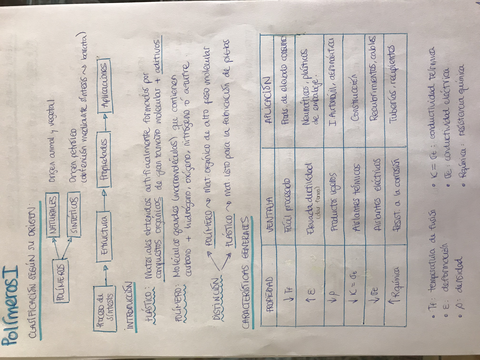 Polímeros I
CLASIFICACIÓN SEGÚN SU ORIGEN:
POLÍMEROS
NATURALES
Origen animal y vegetal
SINTÉTICOS
Origen petróleo
(obtención mediante síntesis
Proceso de síntesis
Estructura
Propiedades
Aplicaciones
INTRODUCCIÓN
PLÁSTICO: Materiales obtenidos artificialmente, formados por
compuestos orgánicos de gran tamaño molecular + aditivos.
POLÍMERO: Moléculas grandes (macromoléculas) que contienen
carbono + hidrógeno, oxígeno, nitrógeno o azufre.
DISTINCIÓN
POLÍMERO → mat orgánico de alto peso molecular
PLÁSTICO → mat listo para la fabricación de piezas
CARACTERÍSTICAS GENERALES
PROPIEDAD VENTAJA APLICACIÓN
↓ Tf Fácil procesado Piezas de elevado consumo
↑ ε Elevada ductilidad Neumáticos, plásticos
de embalaje.
↓ ρ Productos ligeros I. Automóvil, doméstica
↓ K = σt Aislantes térmicos Construcción
↓ σe Aislantes eléctricos Recubrimientos, cables
↑ Rquímica Resist. a la corrosión Tuberías, recipientes
• Tf: temperatura de fusión
• ε: deformación
• ρ: densidad
• K = σt: conductividad térmica
• σe: conductividad eléctrica
• Rquímica: resistencia química